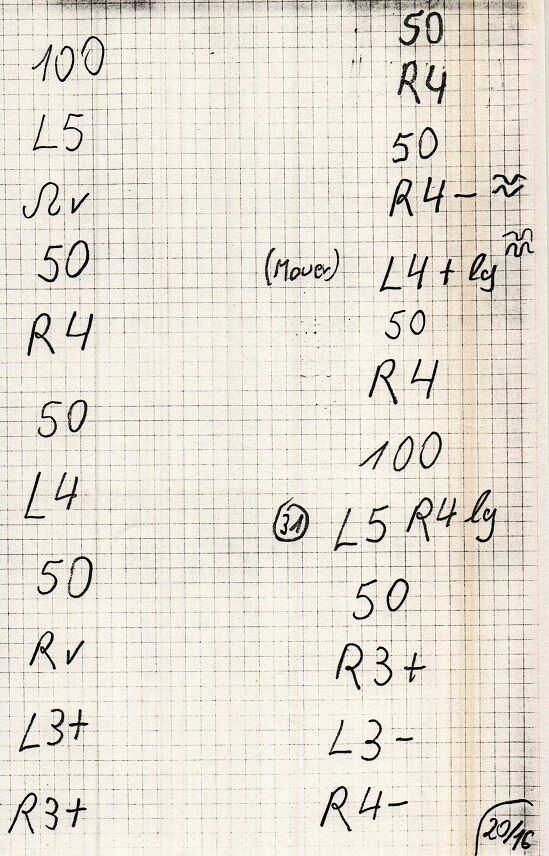 100
L5
Rv
50
R4
50
L4
50
Rv
L3+
R3+
50
R4
50
R4- ≈
(Mauer) L4+ lg ≈
50
R4
100
31 L5 R4 lg
50
R3+
L3-
R4-
20/16